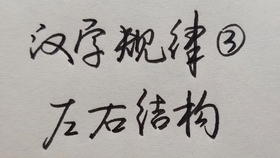 汉字规律③
左右结构